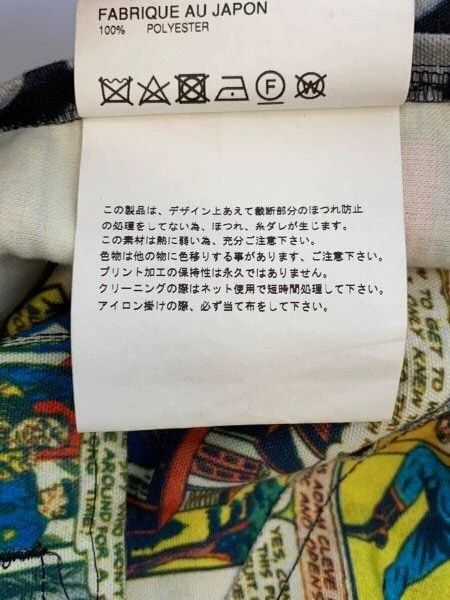 FABRIQUE AU JAPON
100% POLYESTER
F W
この製品は、デザイン上あえて裁断部分のほつれ防止
の処理をしてない為、ほつれ、糸ダレが生じます。
この素材は熱に弱い為、充分ご注意下さい。
色物は他の物に色移りする事があります、ご注意下さい。
プリント加工の保持性は永久ではありません。
クリーニングの際はネット使用で短時間処理して下さい。
アイロン掛けの際、必ず当て布をして下さい。
TO GET TO
ONLY KNEW
AROUND FOR A
TIME
AND
YES,
THIS